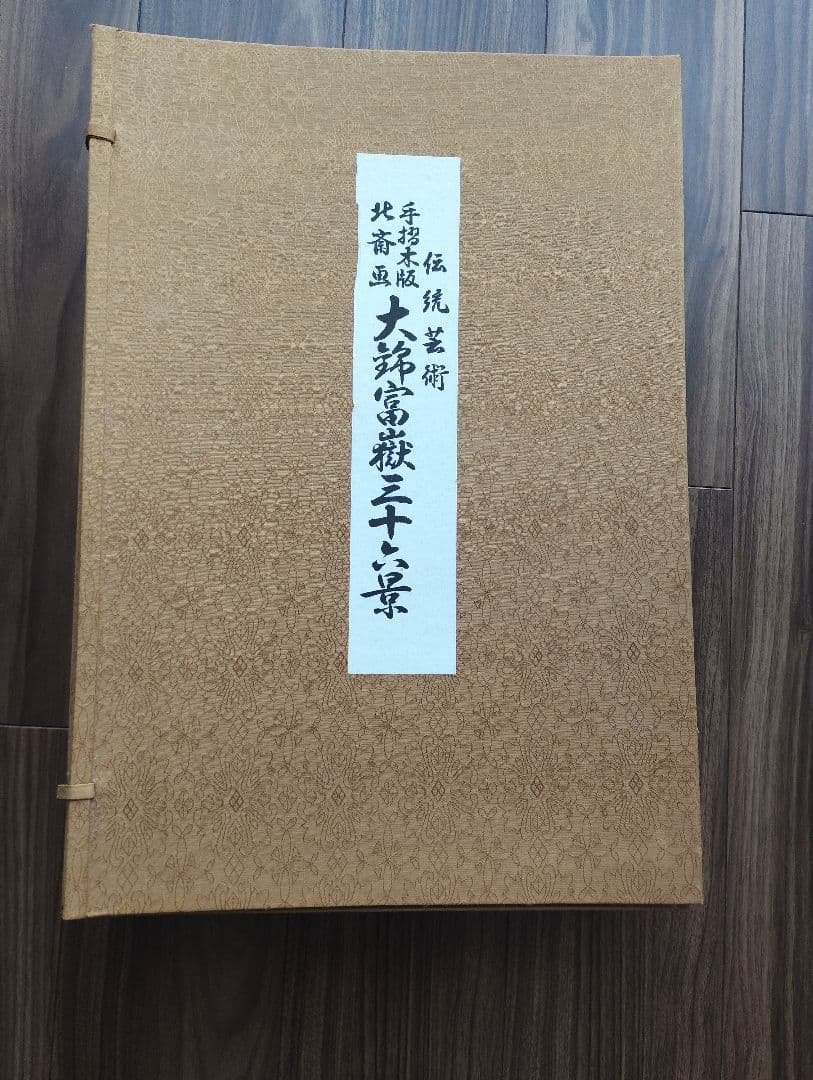 伝統芸術
手摺木版
北斎画
大錦富嶽三十六景